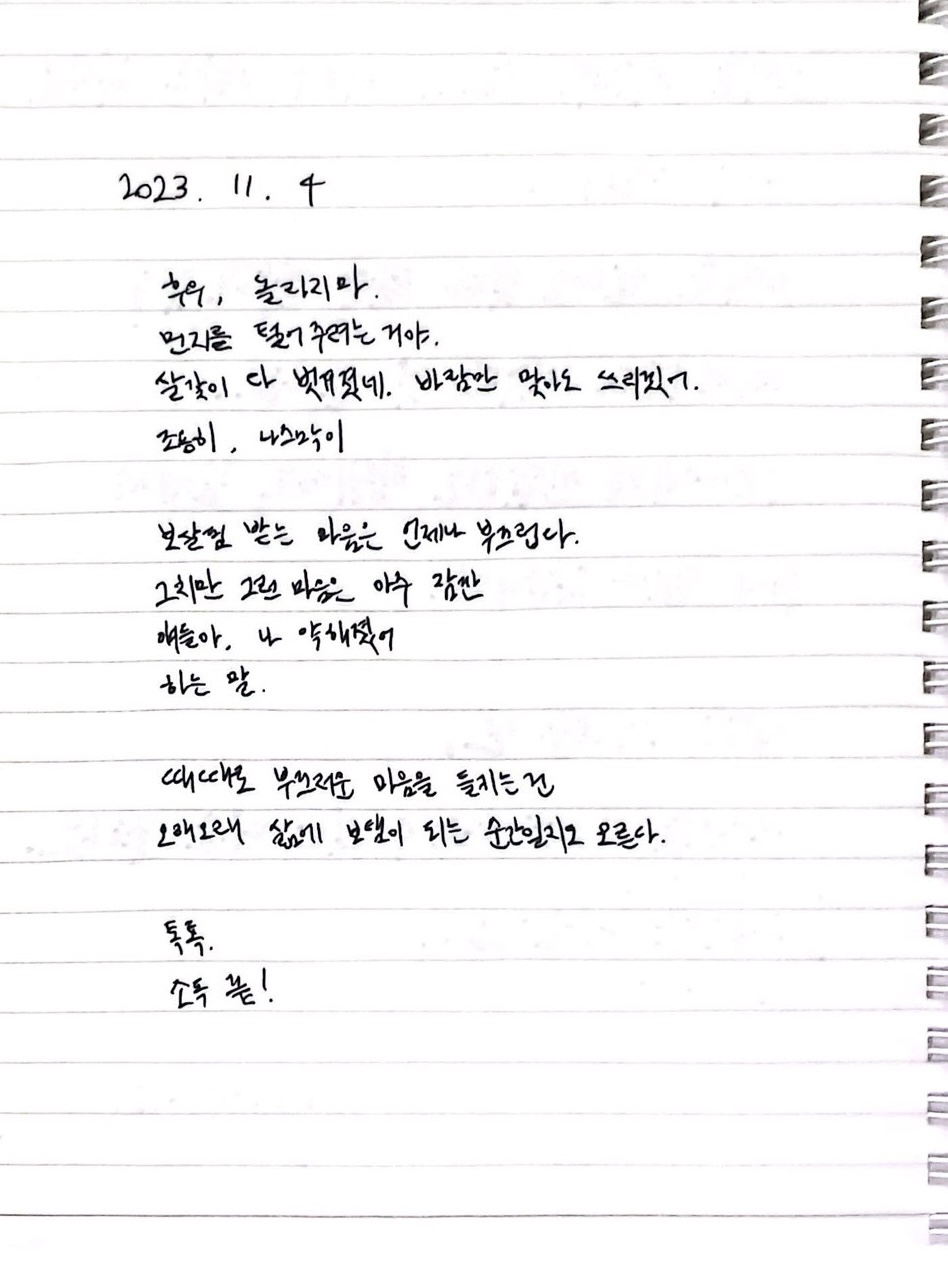 2023. 11. 4
후우, 놀라지마.
먼지를 털어주려는 거야.
살갗이 다 벗겨졌네. 바람만 맞아도 쓰리겠어.
조용히, 나즈막이
보살핌 받는 마음은 언제나 부끄럽다.
그치만 그런 마음은 아주 잠깐
얘들아, 나 약해졌어
하는 말.
때때로 부끄러운 마음을 들키는 건
오래오래 삶에 보탬이 되는 순간일지도 모른다.
톡톡.
소독 끝!